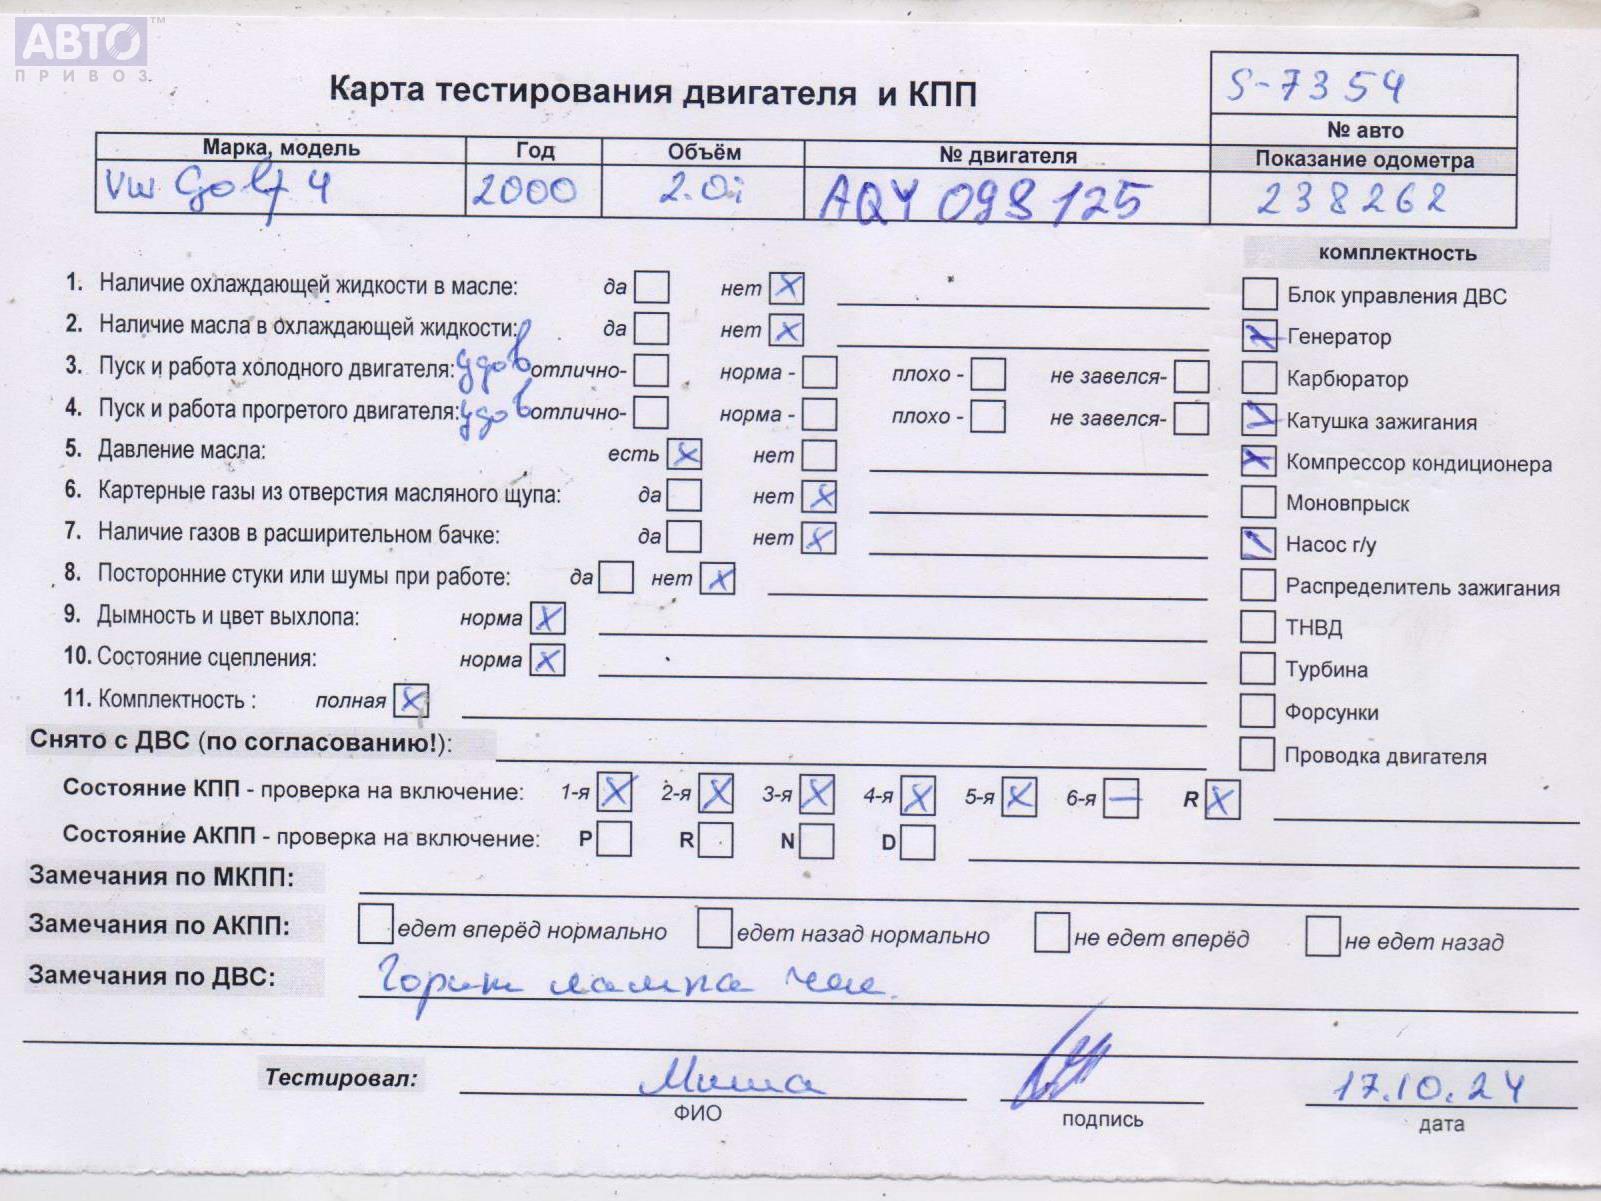 АВТО™
ПРИВОЗ
Карта тестирования двигателя и КПП
S-7354
№ авто
Марка, модель Год Объём № двигателя Показание одометра
VW Golf 4 2000 2.0i AQY 098125 238262
комплектность
1. Наличие охлаждающей жидкости в масле: да нет x
2. Наличие масла в охлаждающей жидкости: да нет x
3. Пуск и работа холодного двигателя: удов отлично- норма - плохо - не завелся-
4. Пуск и работа прогретого двигателя: удов отлично- норма - плохо - не завелся-
5. Давление масла: есть x нет
6. Картерные газы из отверстия масляного щупа: да нет x
7. Наличие газов в расширительном бачке: да нет x
8. Посторонние стуки или шумы при работе: да нет x
9. Дымность и цвет выхлопа: норма x
10. Состояние сцепления: норма x
11. Комплектность : полная x
Блок управления ДВС
Генератор
Карбюратор
Катушка зажигания
Компрессор кондиционера
Моновпрыск
Насос г/у
Распределитель зажигания
ТНВД
Турбина
Форсунки
Проводка двигателя
Снято с ДВС (по согласованию!):
Состояние КПП - проверка на включение: 1-я x 2-я x 3-я x 4-я x 5-я x 6-я — R x
Состояние АКПП - проверка на включение: P R N D
Замечания по МКПП:
Замечания по АКПП: едет вперёд нормально едет назад нормально не едет вперёд не едет назад
Замечания по ДВС: Горит лампа чек.
Тестировал: Миша 17.10.24
ФИО подпись дата